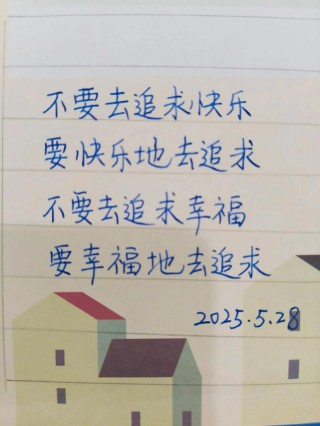 不要去追求快乐
要快乐地去追求
不要去追求幸福
要幸福地去追求
2025.5.28